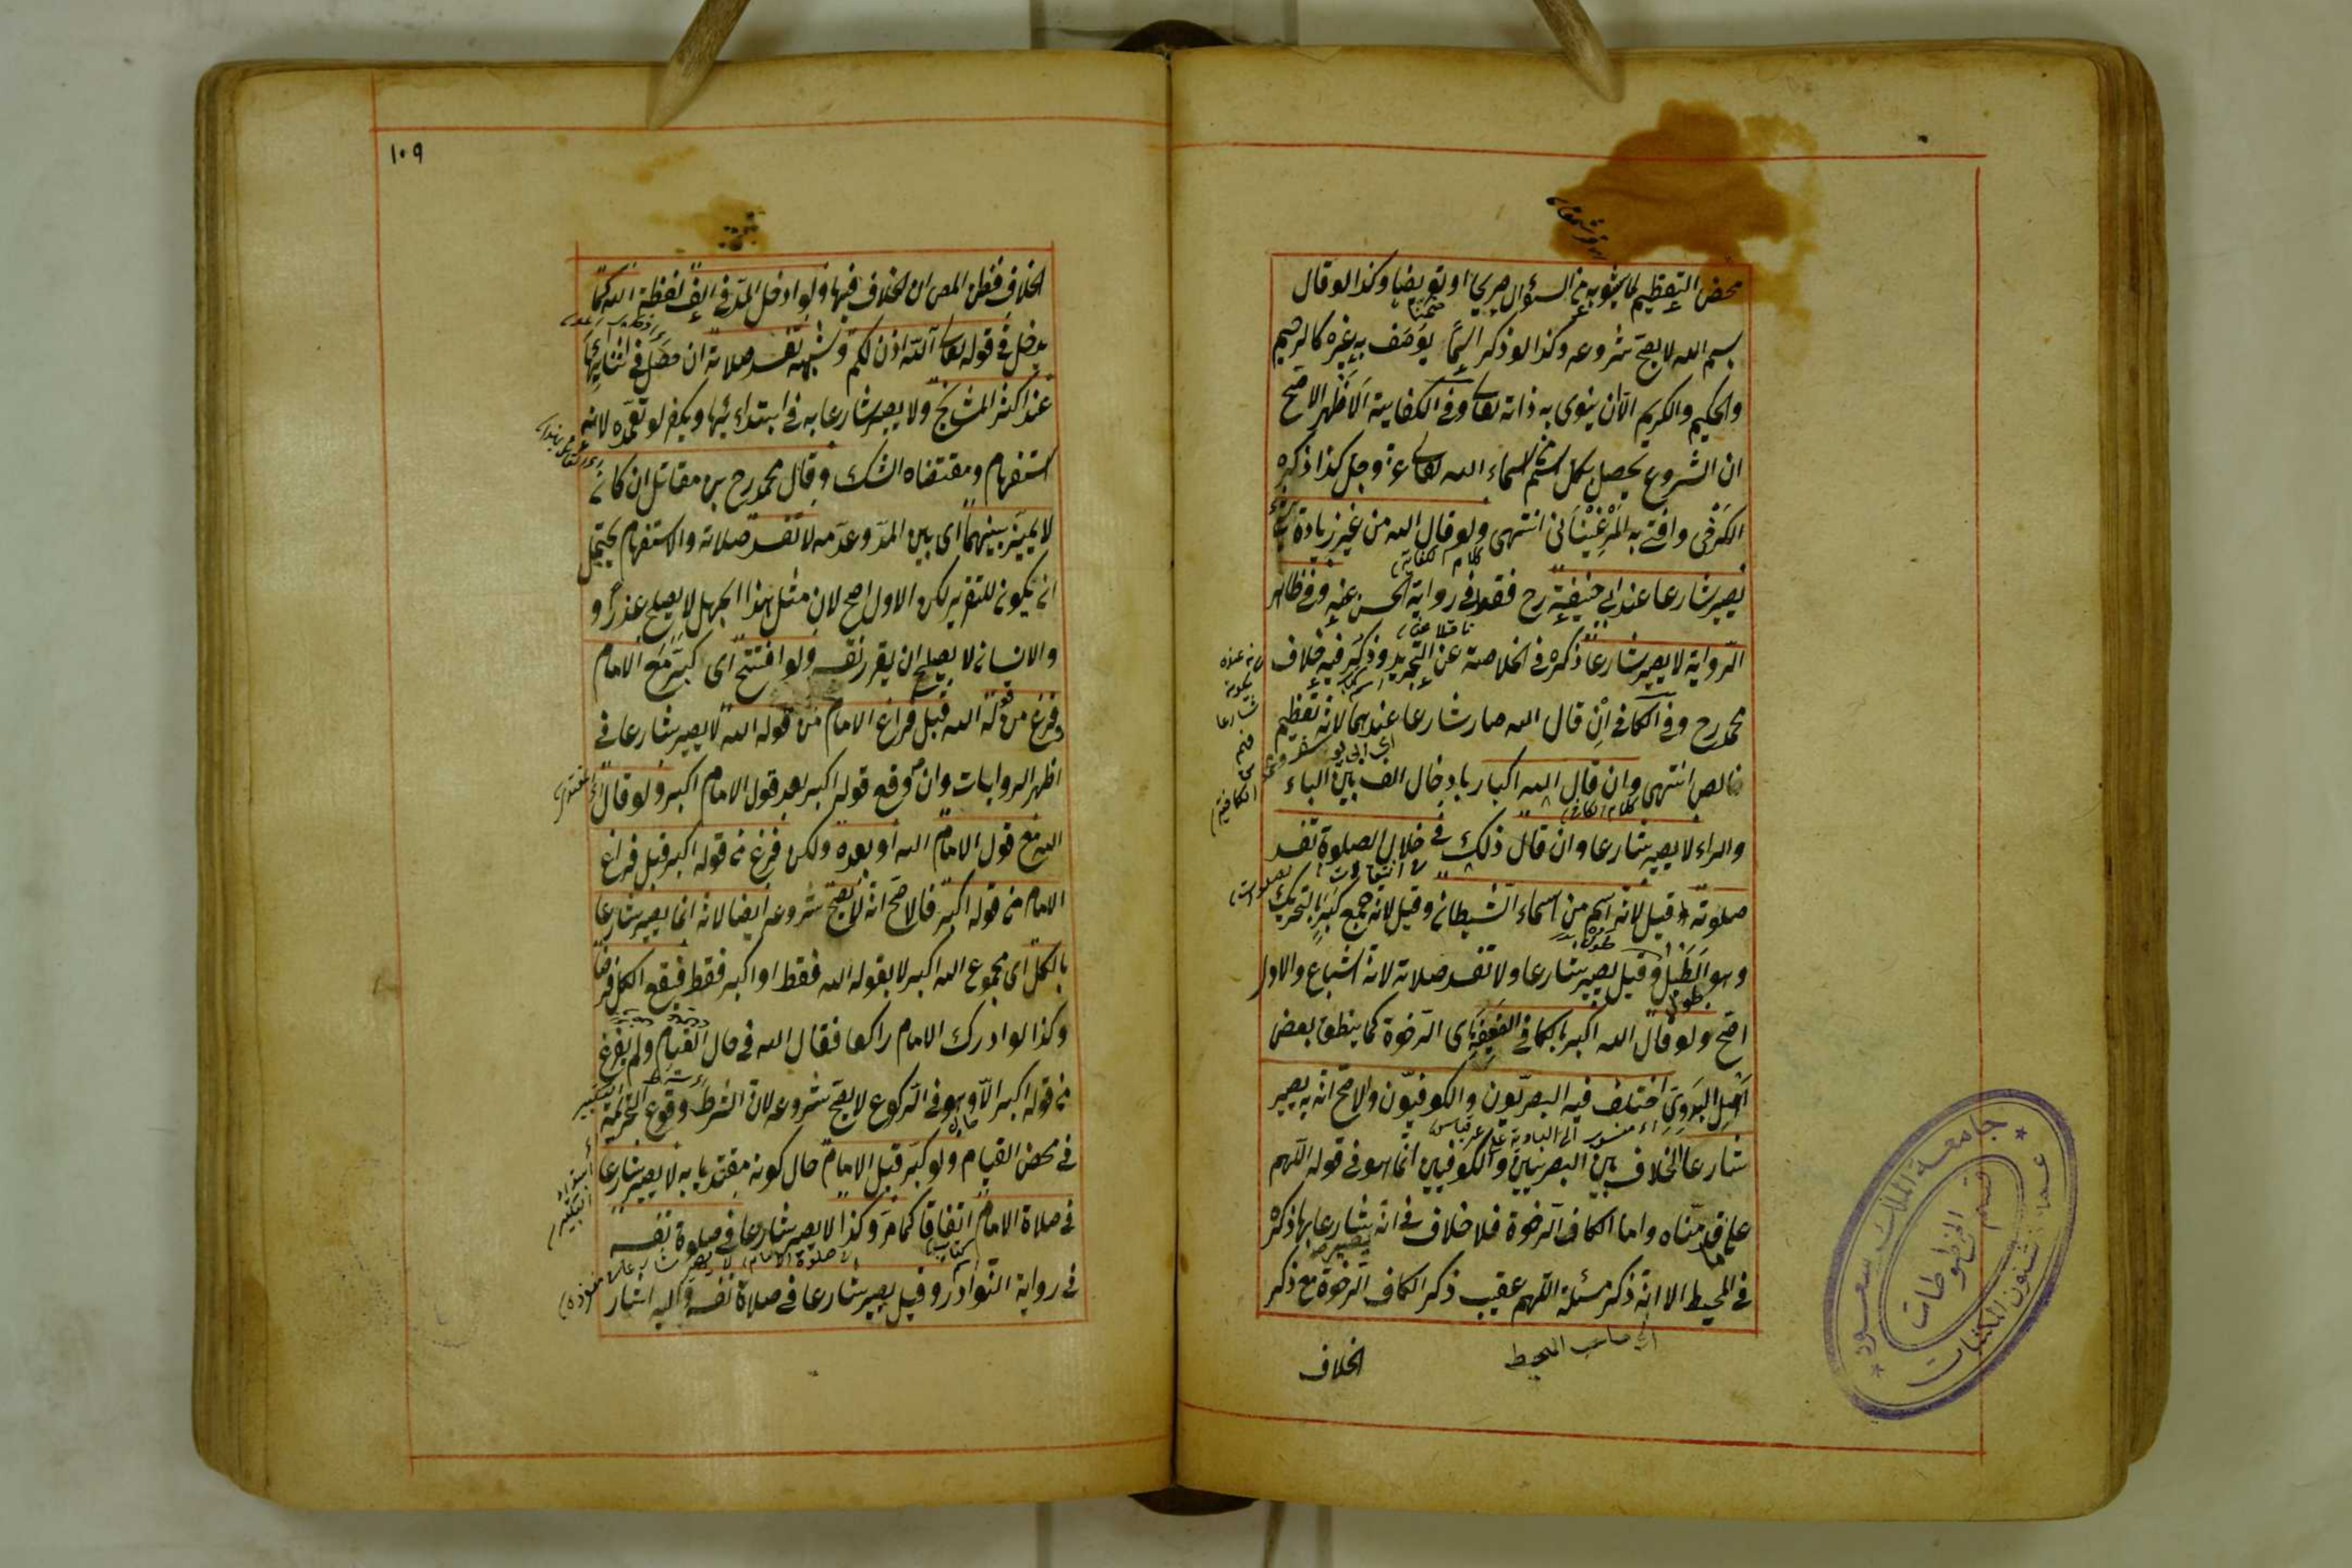 محض التعظيم لما يشوبه من السؤال صريحا او تعريضا وكذا لو قال
بسم الله لا يصح شروعه وكذا لو ذكر اسما يوصف به غيره كالرحيم
والحكيم والكريم الا ان ينوي به ذاته تعالى وفي الكفاية الاظهر الاصح
ان الشروع يحصل بكل اسم من اسماء الله تعالى عز وجل كذا ذكره
الكرخي وافتى به المرغيناني انتهى ولو قال الله من غير زيادة شئ
يصير شارعا عند ابي حنيفة رح فقط في رواية الحسن عنه وفي ظاهر
الرواية لا يصير شارعا ذكره في الخلاصة عن التجريد وذكر فيه خلاف
محمد رح وفي الكافي ان قال الله صار شارعا عندهما لانه تعظيم
خالص انتهى وان قال الله اكبار بادخال الف بين الباء
والراء لا يصير شارعا وان قال ذلك في خلال الصلوة تفسد
صلوته قيل لانه اسم من اسماء الشيطان وقيل لانه جمع كبر بالتحريك
وهو الطبل وقيل يصير شارعا ولا تفسد صلاته لانه اشباع والاول
اصح ولو قال الله اكبر بالكاف الضعيفة اي الرخوة كما ينطق بعض
اهل البدوي اختلف فيه البصريون والكوفيون والاصح انه به يصير
شارعا الخلاف بين البصريين والكوفيين انما هو في قوله اللهم
على ما قدمناه واما الكاف الرخوة فلا خلاف في انه يصير شارعا بها ذكره
في المحيط الا انه ذكر مسئلة اللهم عقيب ذكر الكاف الرخوة مع ذكر
اي صاحب المحيط
الخلاف
جامعة الملك سعود
عمادة شئون المكتبات
قسم المخطوطات
١٠٩
الخلاف فظن المص ان الخلاف فيها ولو ادخل المد في الف لفظة الله كما
يدخل في قوله تعالى آلله اذن لكم وشبهه تفسد صلاته ان حصل في اثنائها
عند اكثر المشايخ ولا يصير شارعا به في ابتدائها ويكفر لو تعمده لانه
استفهام ومقتضاه الشك وقال محمد رح بن مقاتل ان كان
لا يميز بينهما اي بين المد وعدمه لا تفسد صلاته والاستفهام يحتمل
ان يكون للتقرير لكن الاول اصح لان مثل هذا الجهل لا يصلح عذرا و
والانسان لا يصلح ان يقرر نفسه ولو افتتح اي كبر مع الامام
وفرغ من قوله الله قبل فراغ الامام من قوله الله لا يصير شارعا في
اظهر الروايات وان وقع قوله اكبر بعد قول الامام اكبر ولو قال
الله مع قول الامام الله او بعده ولكن فرغ من قوله اكبر قبل فراغ
الامام من قوله اكبر فالاصح انه لا يصح شروعه ايضا لانه انما يصير شارعا
بالكل اي مجموع الله اكبر لا بقوله الله فقط او اكبر فقط فيقع الكل فرضا
وكذا لو ادرك الامام راكعا فقال الله في حال القيام ولم يفرغ
من قوله اكبر الا وهو في الركوع لا يصح شروعه لان الشرط وقوع التحريمة
في محض القيام ولو كبر قبل الامام حال كونه مقتديا به لا يصير شارعا
في صلاة الامام اتفاقا كما مر وكذا لا يصير شارعا في صلوة نفسه
في رواية النوادر وقيل يصير شارعا في صلاة نفسه واليه اشار